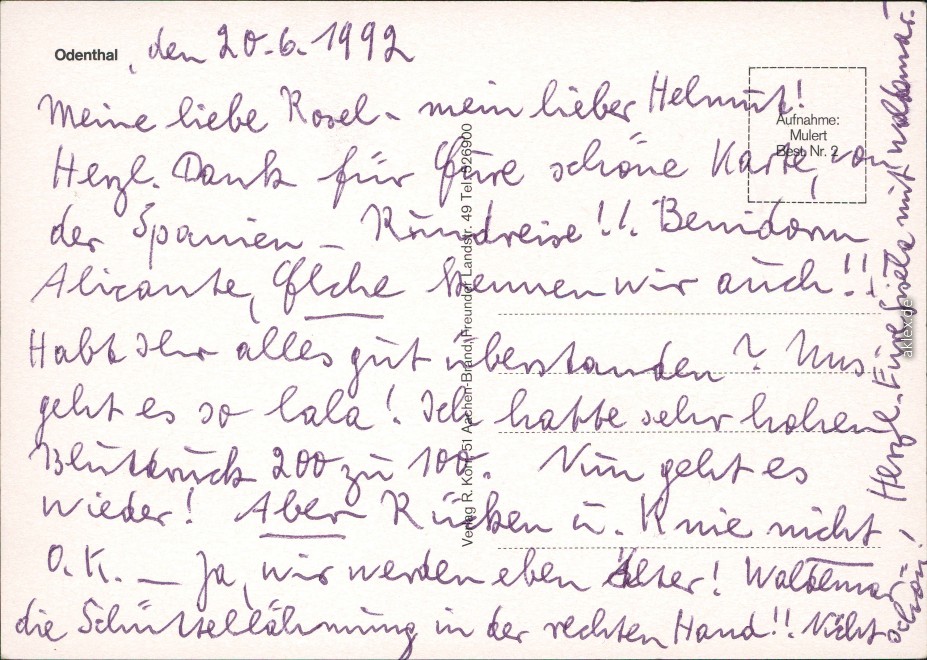 Odenthal, den 20.6.1992
Meine liebe Rosel - mein lieber Helmut!
Herzl. Dank für Eure schöne Karte, von
der Spanien - Rundreise!!. Benidorm
Alicante, Elche kennen wir auch!!
Habt Ihr alles gut überstanden? Uns
geht es so lala! Ich hatte sehr hohen
Blutdruck 200 zu 100. Nun geht es
wieder! Aber Rücken u. Knie nicht
O.K. — Ja, wir werden eben älter! Waldemar
die Schüttellähmung in der rechten Hand!!. Nicht
schön! Herzl. Eure Gisela mit Waldemar.
Aufnahme:
Mulert
Best. Nr. 2
Verlag R. Korr, 51 Aachen-Brand, Freunder Landstr. 49 Tel. 526900
aklex.de